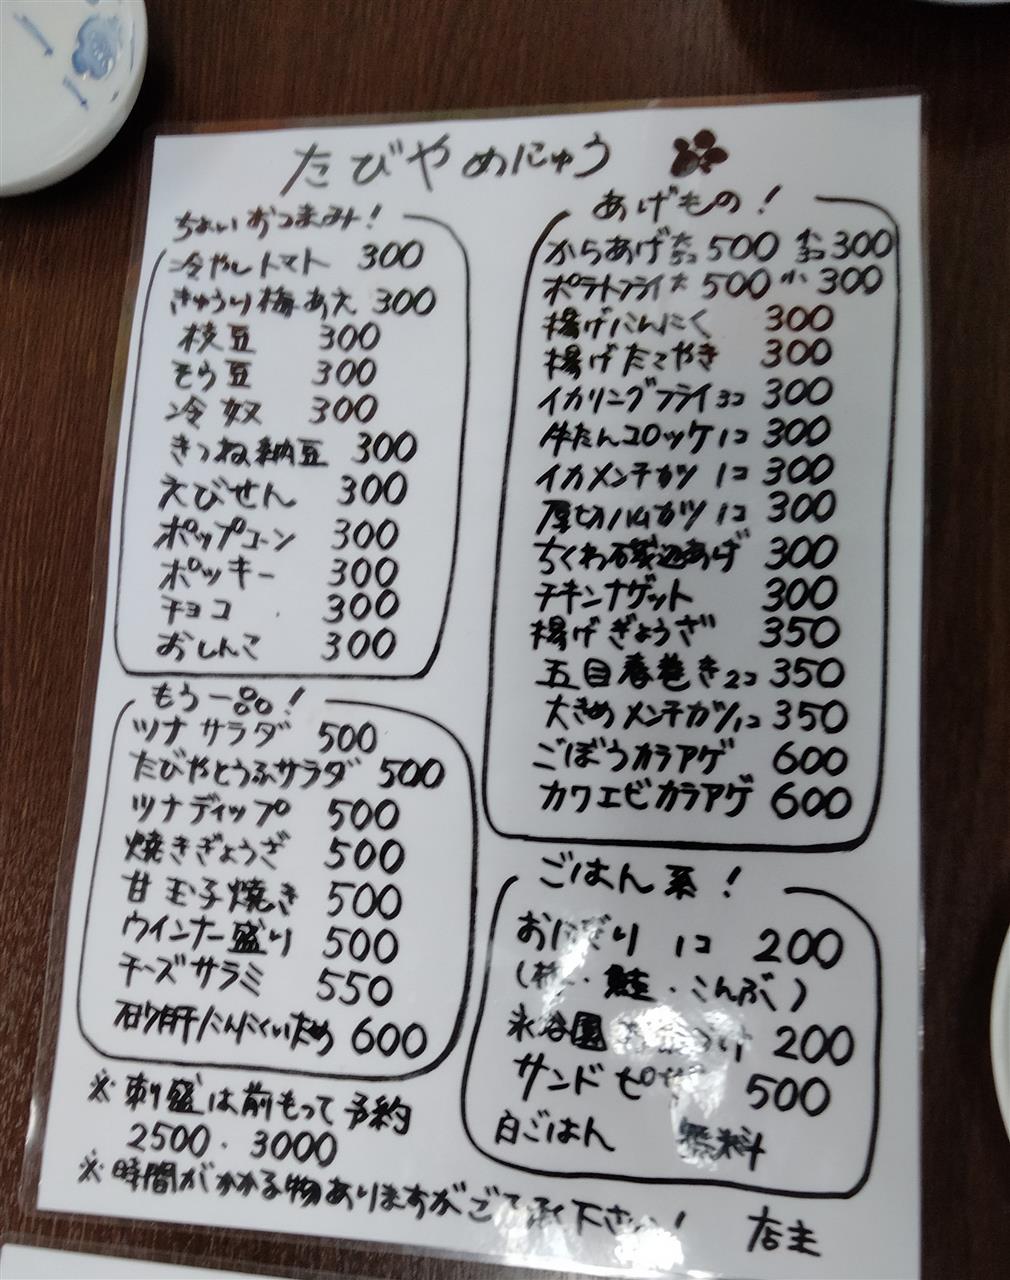 たびやめにゅう
ちょいおつまみ!
冷やしトマト 300
きゅうり梅あえ 300
枝豆 300
そら豆 300
冷奴 300
きつね納豆 300
えびせん 300
ポップコーン 300
ポッキー 300
チョコ 300
おしんこ 300
もう一品!
ツナサラダ 500
たびやとうふサラダ 500
ツナディップ 500
焼きぎょうざ 500
甘玉子焼き 500
ウインナー盛り 500
チーズサラミ 550
砂肝にんにくいため 600
※刺盛は前もって予約
2500・3000
あげもの!
からあげ 大5コ 500 小3コ 300
ポテトフライ 大 500 小 300
揚げにんにく 300
揚げたこやき 300
イカリングフライ3コ 300
牛たんコロッケ1コ 300
イカメンチカツ1コ 300
厚切ハムカツ1コ 300
ちくわ磯辺あげ 300
チキンナゲット 300
揚げぎょうざ 350
五目春巻き2コ 350
大きめメンチカツ1コ 350
ごぼうカラアゲ 600
カワエビカラアゲ 600
ごはん系!
おにぎり 1コ 200
(梅・鮭・こんぶ)
永谷園お茶づけ 200
サンドピザ 500
白ごはん 無料
※時間がかかる物ありますがご了承下さい! 店主